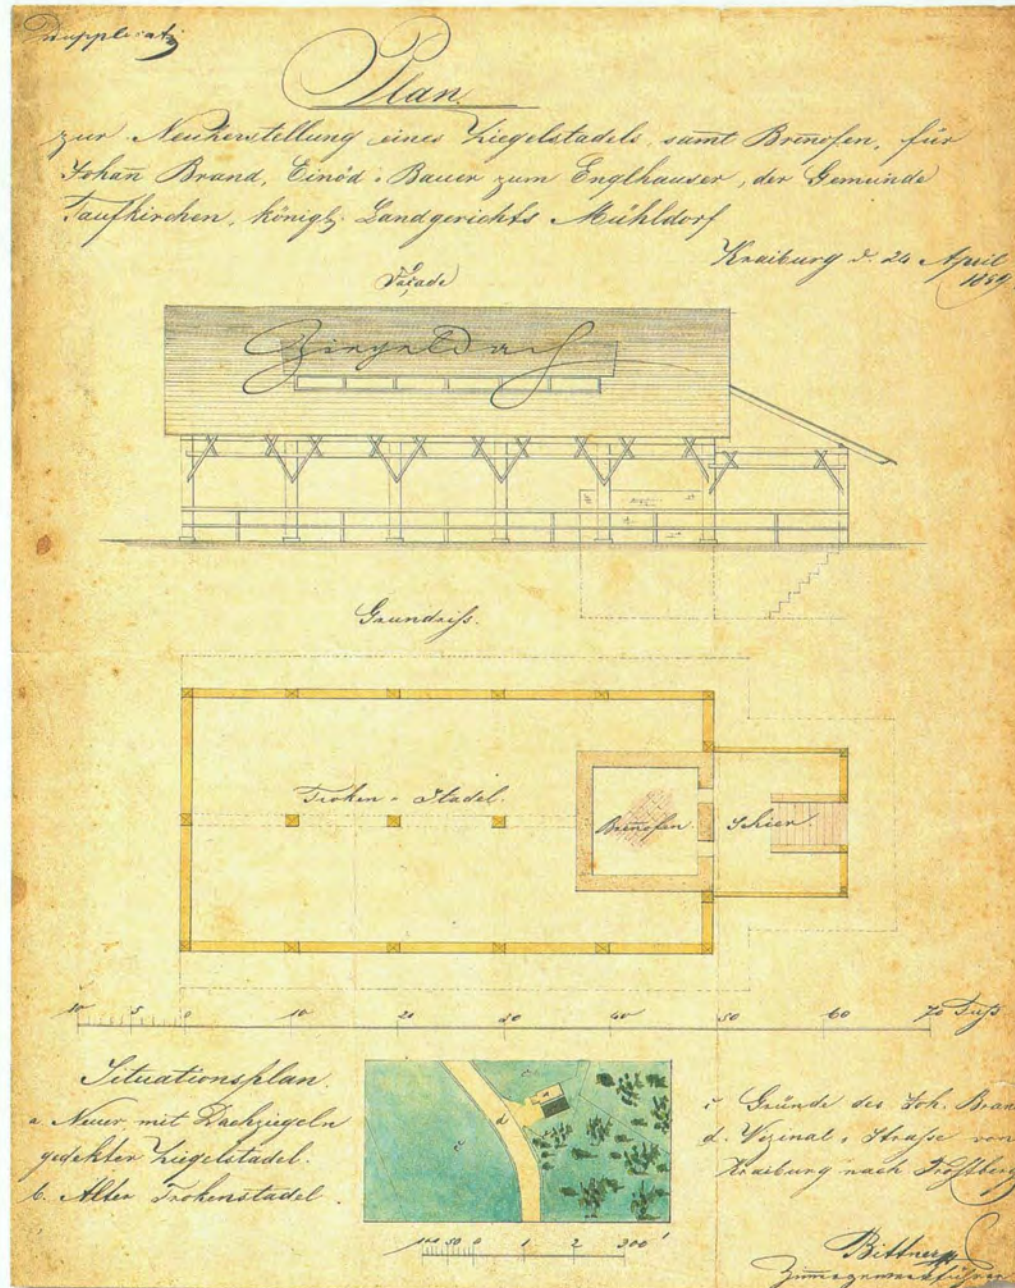 Dupplicat
Plan
zur Neuherstellung eines Ziegelstadels, sam̃t Breñofen, für
Johañ Brand, Einöd-Bauer zum Englhauser, der Gemeinde
Taufkirchen, königl. Landgerichts Mühldorf
Kraiburg d. 24 April
1859
Façade
Ziegeldach
Grundriss.
Troken-Stadel.
Breñofen.
Schier.
10 5 0 10 20 30 40 50 60 70 Fuss
Situationsplan.
a Neuer mit Dachziegeln
gedekter Ziegelstadel.
b. Alter Trokenstadel.
c
d
c
c Gründe des Joh. Brand
d. Vizinal-Strasse von
Kraiburg nach Trostberg
100 50 0 1 2 300'
Bittner